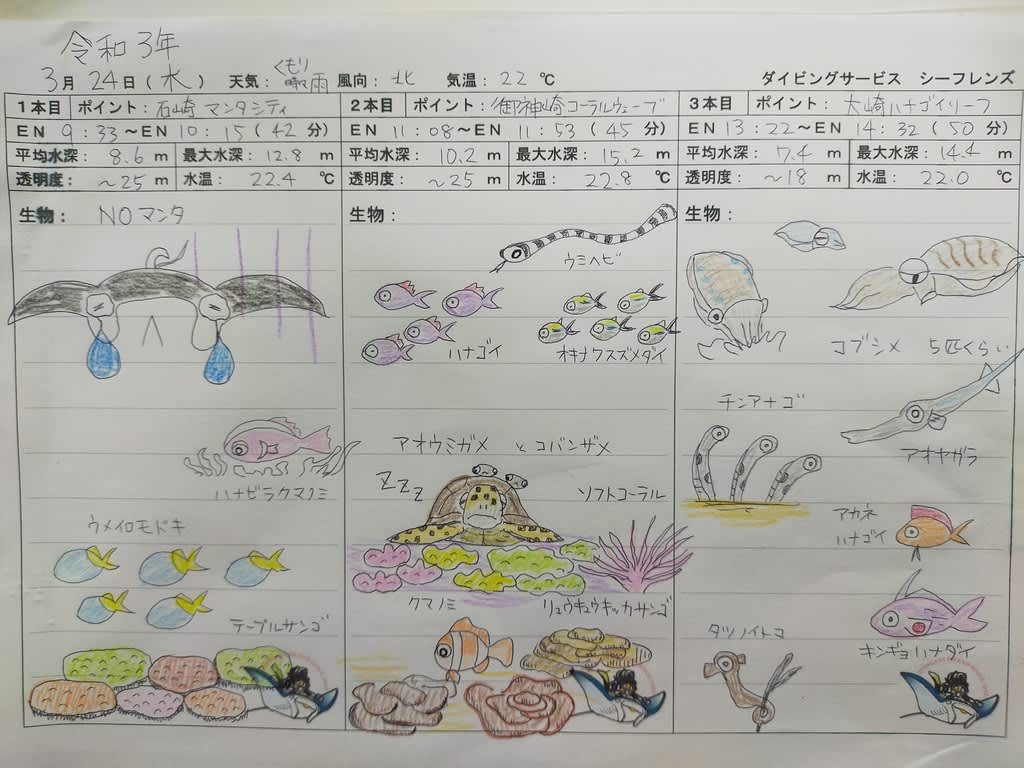 令和3年
3月 24日(水) 天気:くもり 晴れ 雨 風向:北 気温:22 ℃ ダイビングサービス シーフレンズ
1本目 ポイント:石崎 マンタシティ
EN 9:33〜EN 10:15(42分)
平均水深: 8.6 m 最大水深: 12.8 m
透明度: 〜25 m 水温: 22.4 ℃
生物: NOマンタ
ハナビラクマノミ
ウメイロモドキ
テーブルサンゴ
2本目 ポイント:御神崎コーラルウェーブ
EN 11:08〜EN 11:53(45分)
平均水深: 10.2 m 最大水深: 15.2 m
透明度: 〜25 m 水温: 22.8 ℃
生物:
ウミヘビ
ハナゴイ オキナワスズメダイ
アオウミガメ とコバンザメ
ZZZ ソフトコーラル
クマノミ リュウキュウキッカサンゴ
3本目 ポイント:大崎ハナゴイリーフ
EN 13:22〜EN 14:32(50分)
平均水深: 7.4 m 最大水深: 14.4 m
透明度: 〜18 m 水温: 22.0 ℃
生物:
コブシメ 5匹くらい
チンアナゴ
アオヤガラ
アカネ
ハナゴイ
キンギョハナダイ
タツノイトコ